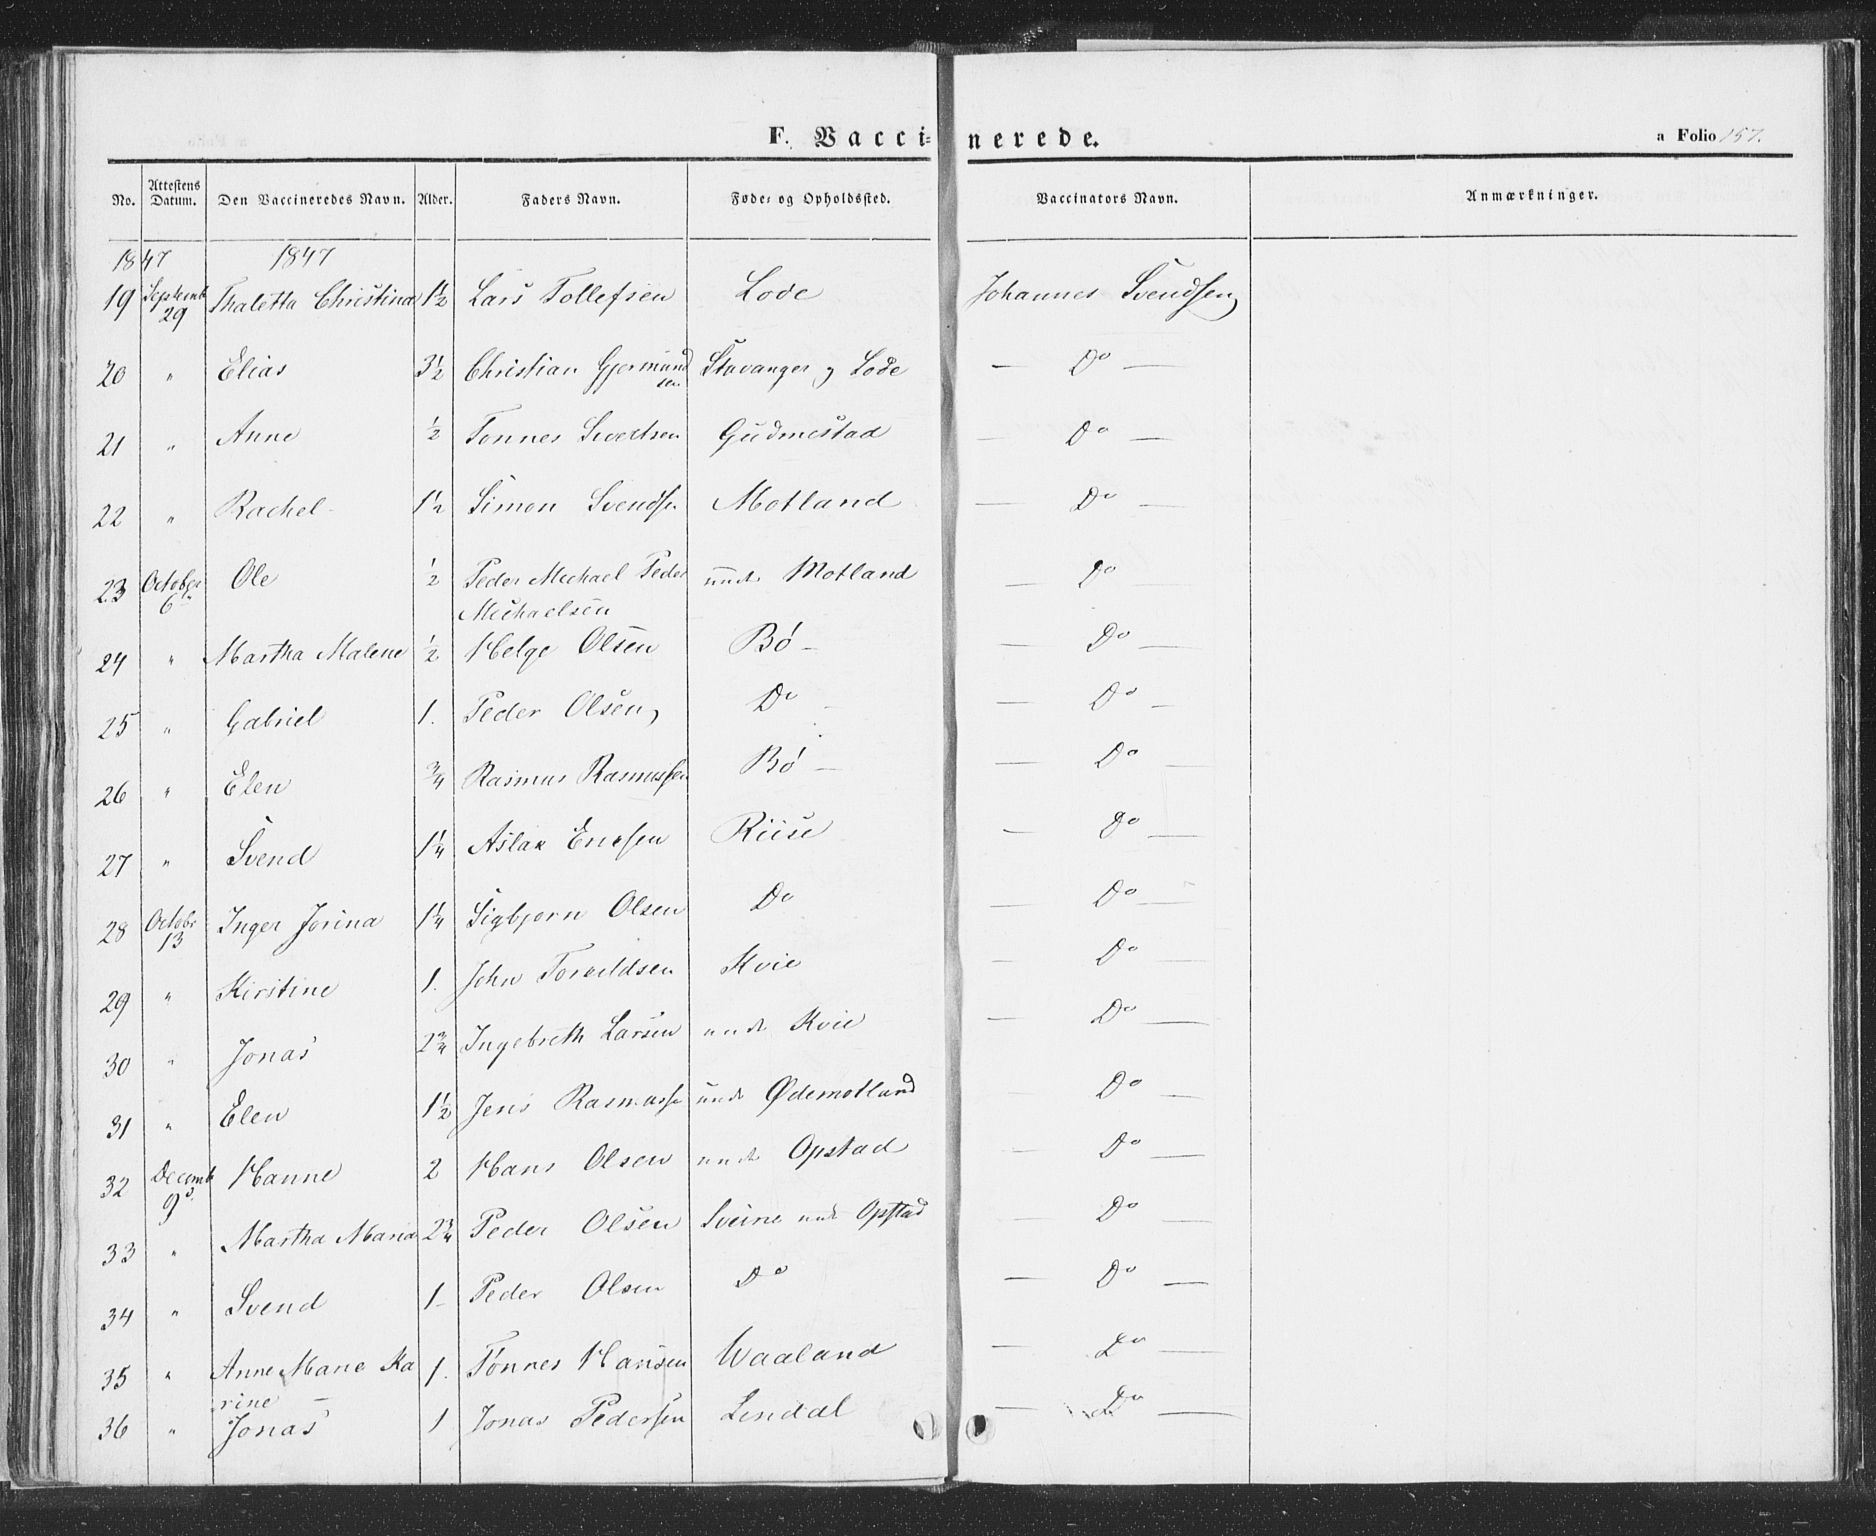 F. Vaccinerede.
a Folio 157.
No. Attestens Datum. Den Vaccineredes Navn. Alder. Faders Navn. Føde- og Opholdssted. Vaccinators Navn. Anmærkninger.
1847 1847
19 Septemb 29 Thaletta Christina 1½ Lars Tollefsen Lode Johannes Svendsen
20 " Elias 3½ Christian Gjermundsen Stavanger og Lode — Do —
21 " Anne ½ Tonnes Sivertsen Gudmestad — Do —
22 " Rachel 1½ Simon Svendsen Motland — Do —
23 October 6 Ole ½ Peder Michael Peder Michaelsen und Motland — Do
24 " Martha Malene ½ Helge Olsen Bø — — Do —
25 " Gabriel 1. Peder Olsen Do — — Do —
26 " Elen ¾ Rasmus Rasmussen Bø — — Do —
27 " Svend 1¼ Aslak Ericsen Riise — Do —
28 Octobr 13 Inger Jorina 1¼ Sigbjorn Olsen Do — Do —
29 " Kirstine 1. John Torkildsen Kvie — Do —
30 " Jonas 2¾ Ingebreth Larsen und Kvie — Do —
31 " Elen 1½ Jens Rasmusse und Ødemotland — Do —
32 Decemb 9 Hanne 2 Hans Olsen und Opstad — Do —
33 " Martha Maria 2¾ Peder Olsen und Opstad — Do —
34 " Svend 1- Peder Olsen Do — Do —
35 " Anne Marie Karine 1. Tønnes Hansen Waaland — Do —
36 " Jonas 1 Jonas Pedersen Lendal — Do —